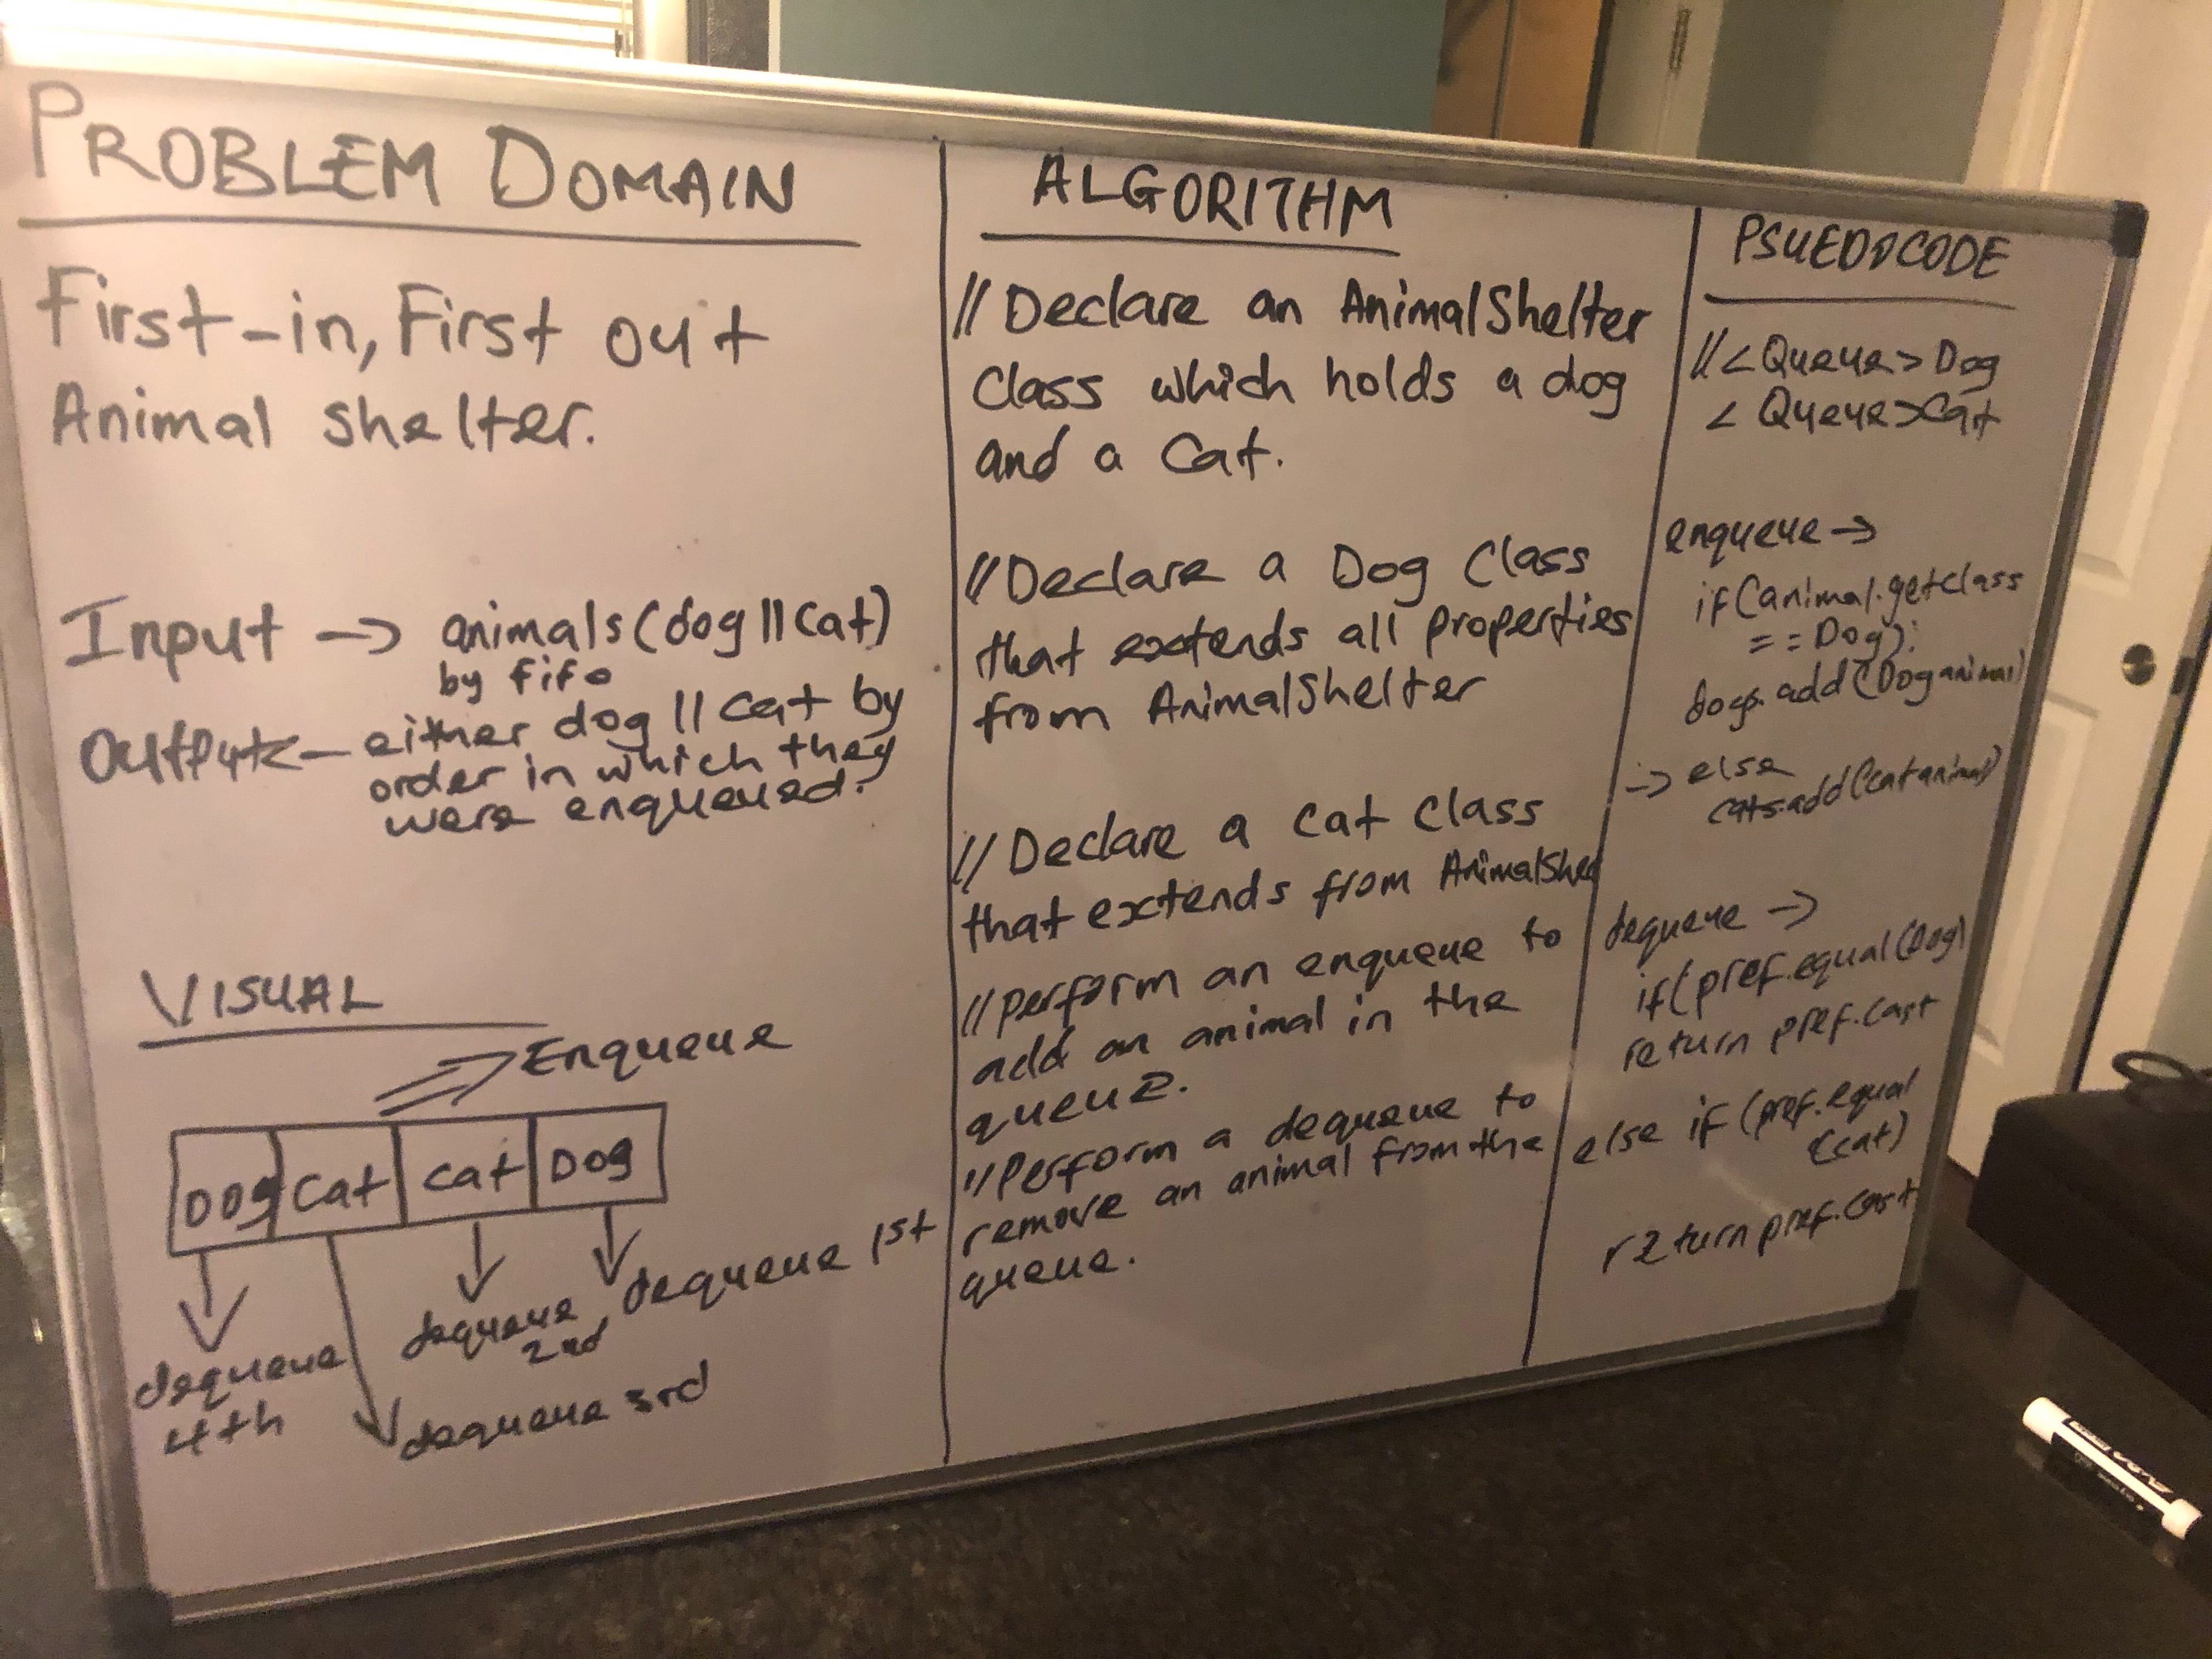 PROBLEM DOMAIN
First-in, First out
Animal shelter.
Input -> animals(dog || cat)
by fifo
Output <- either dog || cat by
order in which they
were enqueued.
VISUAL
Enqueue
Dog Cat Cat Dog
dequeue 1st
dequeue
2nd
dequeue
4th
dequeue 3rd
ALGORITHM
// Declare an AnimalShelter
Class which holds a dog
and a Cat.
// Declare a Dog Class
that extends all properties
from AnimalShelter
// Declare a Cat Class
that extends from AnimalShel
// perform an enqueue to
add an animal in the
queue.
// Perform a dequeue to
remove an animal from the
queue.
PSUEDOCODE
// <Queue> Dog
<Queue> Cat
enqueue ->
if (animal.getclass
== Dog):
dogs.add(Dog animal)
-> else
cats.add(cat animal)
dequeue ->
if (pref.equal(Dog)
return pref.cast
else if (pref.equal
(cat)
return pref.cast